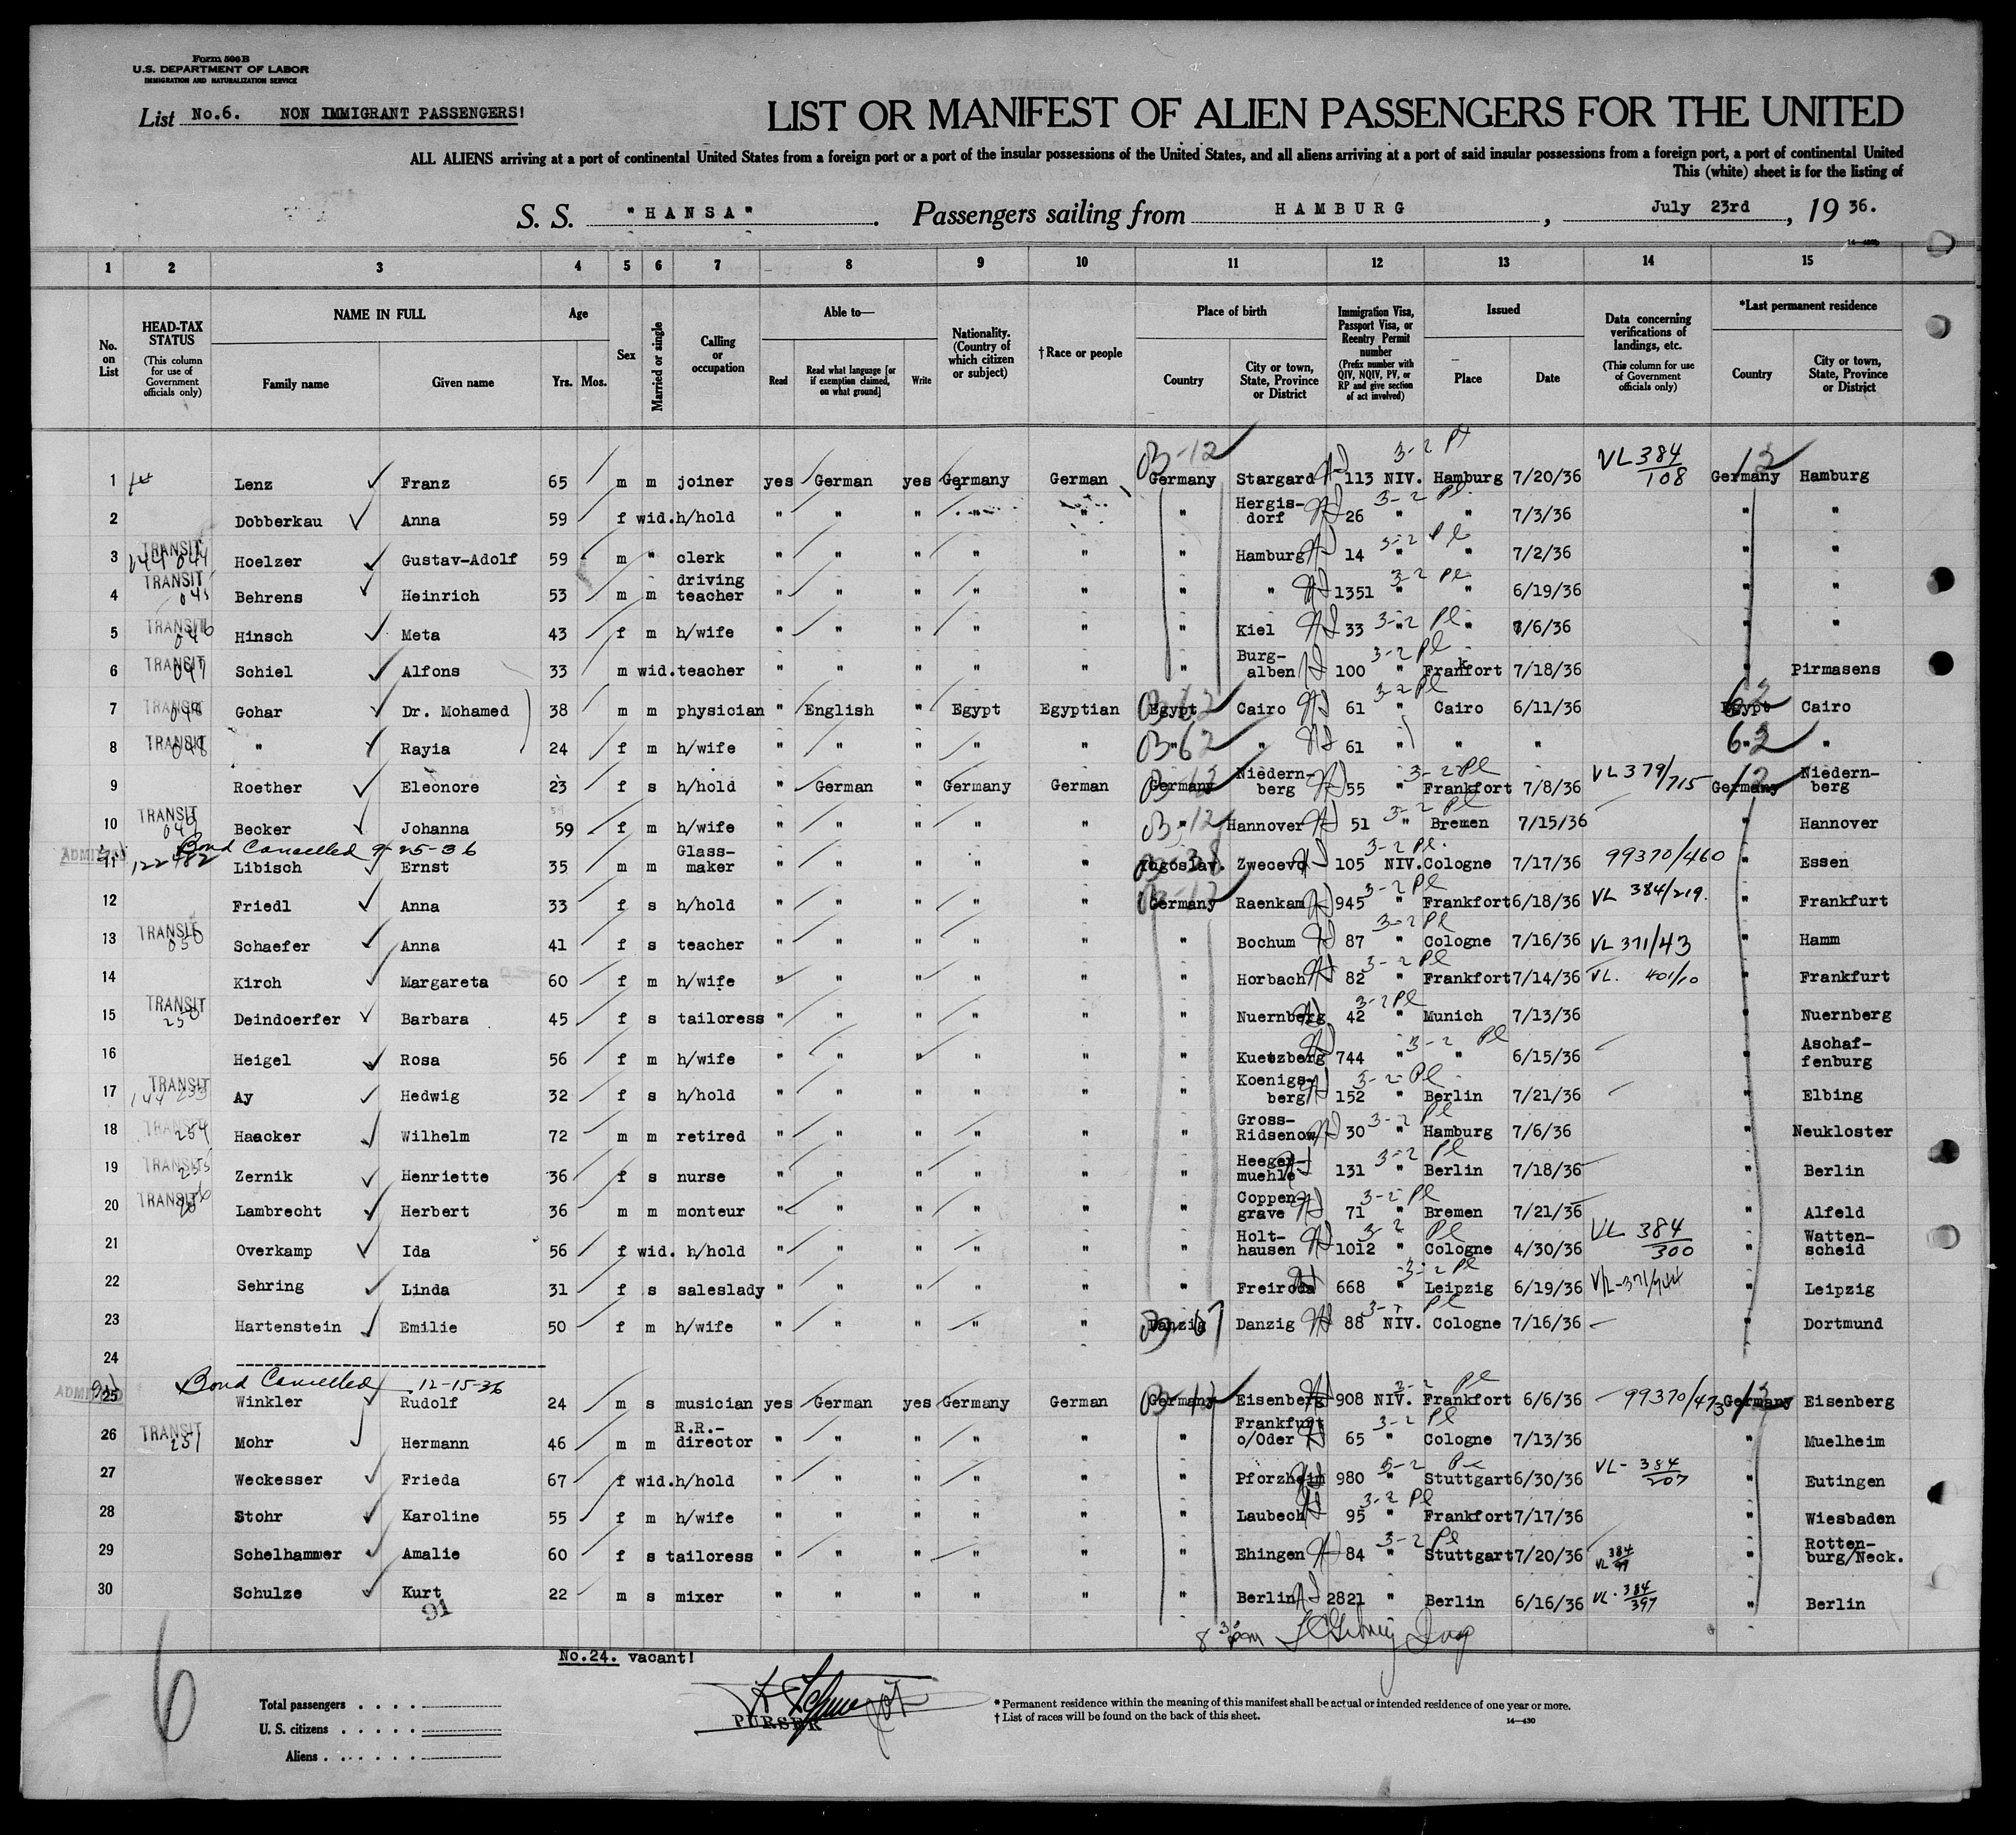 Form 500B
U.S. DEPARTMENT OF LABOR
IMMIGRATION AND NATURALIZATION SERVICE
List No.6. NON IMMIGRANT PASSENGERS!
LIST OR MANIFEST OF ALIEN PASSENGERS FOR THE UNITED
ALL ALIENS arriving at a port of continental United States from a foreign port or a port of the insular possessions of the United States, and all aliens arriving at a port of said insular possessions from a foreign port, a port of continental United
This (white) sheet is for the listing of
S. S. "HANSA". Passengers sailing from HAMBURG, July 23rd, 1936.
1 2 3 4 5 6 7 8 9 10 11 12 13 14 15
No. on List
HEAD-TAX STATUS (This column for use of Government officials only)
NAME IN FULL Family name Given name
Age Yrs. Mos.
Sex
Married or single
Calling or occupation
Able to— Read Read what language [or if exemption claimed, on what ground] Write
Nationality. (Country of which citizen or subject)
†Race or people
Place of birth Country City or town, State, Province or District
Immigration Visa, Passport Visa, or Reentry Permit number (Prefix number with QIV, NQIV, PV, or RP and give section of act involved)
Issued Place Date
Data concerning verifications of landings, etc. (This column for use of Government officials only)
*Last permanent residence Country City or town, State, Province or District
1 Lenz Franz 65 m m joiner yes German yes Germany German Germany Stargard 113 NIV. 3-2 Pl Hamburg 7/20/36 VL 384/108 Germany Hamburg
2 Dobberkau Anna 59 f wid. h/hold " " " " " " Hergis-dorf 26 " 3-2 Pl " 7/3/36 " "
3 TRANSIT 144 044 Hoelzer Gustav-Adolf 59 m " clerk " " " " " " Hamburg 14 " 3-2 Pl " 7/2/36 " "
4 TRANSIT 045 Behrens Heinrich 53 m m driving teacher " " " " " " " 1351 " 3-2 Pl " 6/19/36 " "
5 TRANSIT 046 Hinsch Meta 43 f m h/wife " " " " " " Kiel 33 " 3-2 Pl " 7/6/36 " "
6 TRANSIT 047 Schiel Alfons 33 m wid. teacher " " " " " " Burg-alben 100 " 3-2 Pl Frankfort 7/18/36 " Pirmasens
7 TRANSIT 048 Gohar Dr. Mohamed 38 m m physician " English " Egypt Egyptian Egypt Cairo 61 " 3-2 Pl Cairo 6/11/36 Egypt Cairo
8 TRANSIT 048 " Rayia 24 f m h/wife " " " " " " " 61 " " " " "
9 Roether Eleonore 23 f s h/hold " German " Germany German Germany Niedern-berg 55 " 3-2 Pl Frankfort 7/8/36 VL 379/715 Germany Niedern-berg
10 TRANSIT 049 Becker Johanna 59 f m h/wife " " " " " " Hannover 51 " 3-2 Pl Bremen 7/15/36 " Hannover
Bond Cancelled 9-25-36
11 ADMITTED 122482 Libisch Ernst 35 m m Glass-maker " " " " " Yogoslav. Zwecevo 105 NIV. 3-2 Pl. Cologne 7/17/36 99370/460 " Essen
12 Friedl Anna 33 f s h/hold " " " " " Germany Raenkam 945 " 3-2 Pl Frankfort 6/18/36 VL 384/219. " Frankfurt
13 TRANSIT 050 Schaefer Anna 41 f s teacher " " " " " " Bochum 87 " 3-2 Pl Cologne 7/16/36 VL 371/43 " Hamm
14 Kirch Margareta 60 f m h/wife " " " " " " Horbach 82 " 3-2 Pl Frankfort 7/14/36 VL. 401/10 " Frankfurt
15 TRANSIT 250 Deindoerfer Barbara 45 f s tailoress " " " " " " Nuernberg 42 " 3-2 Pl Munich 7/13/36 " Nuernberg
16 Heigel Rosa 56 f m h/wife " " " " " " Kuetzberg 744 " 3-2 Pl " 6/15/36 " Aschaf-fenburg
17 TRANSIT 144 253 Ay Hedwig 32 f s h/hold " " " " " " Koenigs-berg 152 " 3-2 Pl Berlin 7/21/36 " Elbing
18 TRANSIT 254 Haacker Wilhelm 72 m m retired " " " " " " Gross-Ridsenow 30 " 3-2 Pl Hamburg 7/6/36 " Neukloster
19 TRANSIT 255 Zernik Henriette 36 f s nurse " " " " " " Heeger-muehle 131 " 3-2 Pl Berlin 7/18/36 " Berlin
20 TRANSIT 256 Lambrecht Herbert 36 m m monteur " " " " " " Coppen-grave 71 " 3-2 Pl Bremen 7/21/36 " Alfeld
21 Overkamp Ida 56 f wid. h/hold " " " " " " Holt-hausen 1012 " 3-2 Pl Cologne 4/30/36 VL 384/300 " Watten-scheid
22 Sehring Linda 31 f s saleslady " " " " " " Freiroda 668 " 3-2 Pl Leipzig 6/19/36 V/L-371/744 " Leipzig
23 Hartenstein Emilie 50 f m h/wife " " " " " Danzig Danzig 88 NIV. 3-2 Pl Cologne 7/16/36 " Dortmund
24 --------------------------------
Bond Cancelled 12-15-36
25 ADMITTED Winkler Rudolf 24 m s musician yes German yes Germany German Germany Eisenberg 908 NIV. 3-2 Pl Frankfort 6/6/36 99370/473 Germany Eisenberg
26 TRANSIT 257 Mohr Hermann 46 m m R.R.-director " " " " " " Frankfurt o/Oder 65 " 3-2 Pl Cologne 7/13/36 " Muelheim
27 Weckesser Frieda 67 f wid. h/hold " " " " " " Pforzheim 980 " 3-2 Pl Stuttgart 6/30/36 VL- 384/207 " Eutingen
28 Stohr Karoline 55 f m h/wife " " " " " " Laubech 95 " 3-2 Pl Frankfort 7/17/36 " Wiesbaden
29 Schelhammer Amalie 60 f s tailoress " " " " " " Ehingen 84 " 3-2 Pl Stuttgart 7/20/36 VL 384/99 " Rotten-burg/Neck.
30 Schulze Kurt 22 m s mixer " " " " " " Berlin 2821 " Berlin 6/16/36 VL. 384/397 " Berlin
91
8 30 pm
No.24. vacant!
6
Total passengers
U. S. citizens
Aliens
PURSER
* Permanent residence within the meaning of this manifest shall be actual or intended residence of one year or more.
† List of races will be found on the back of this sheet.
14—430